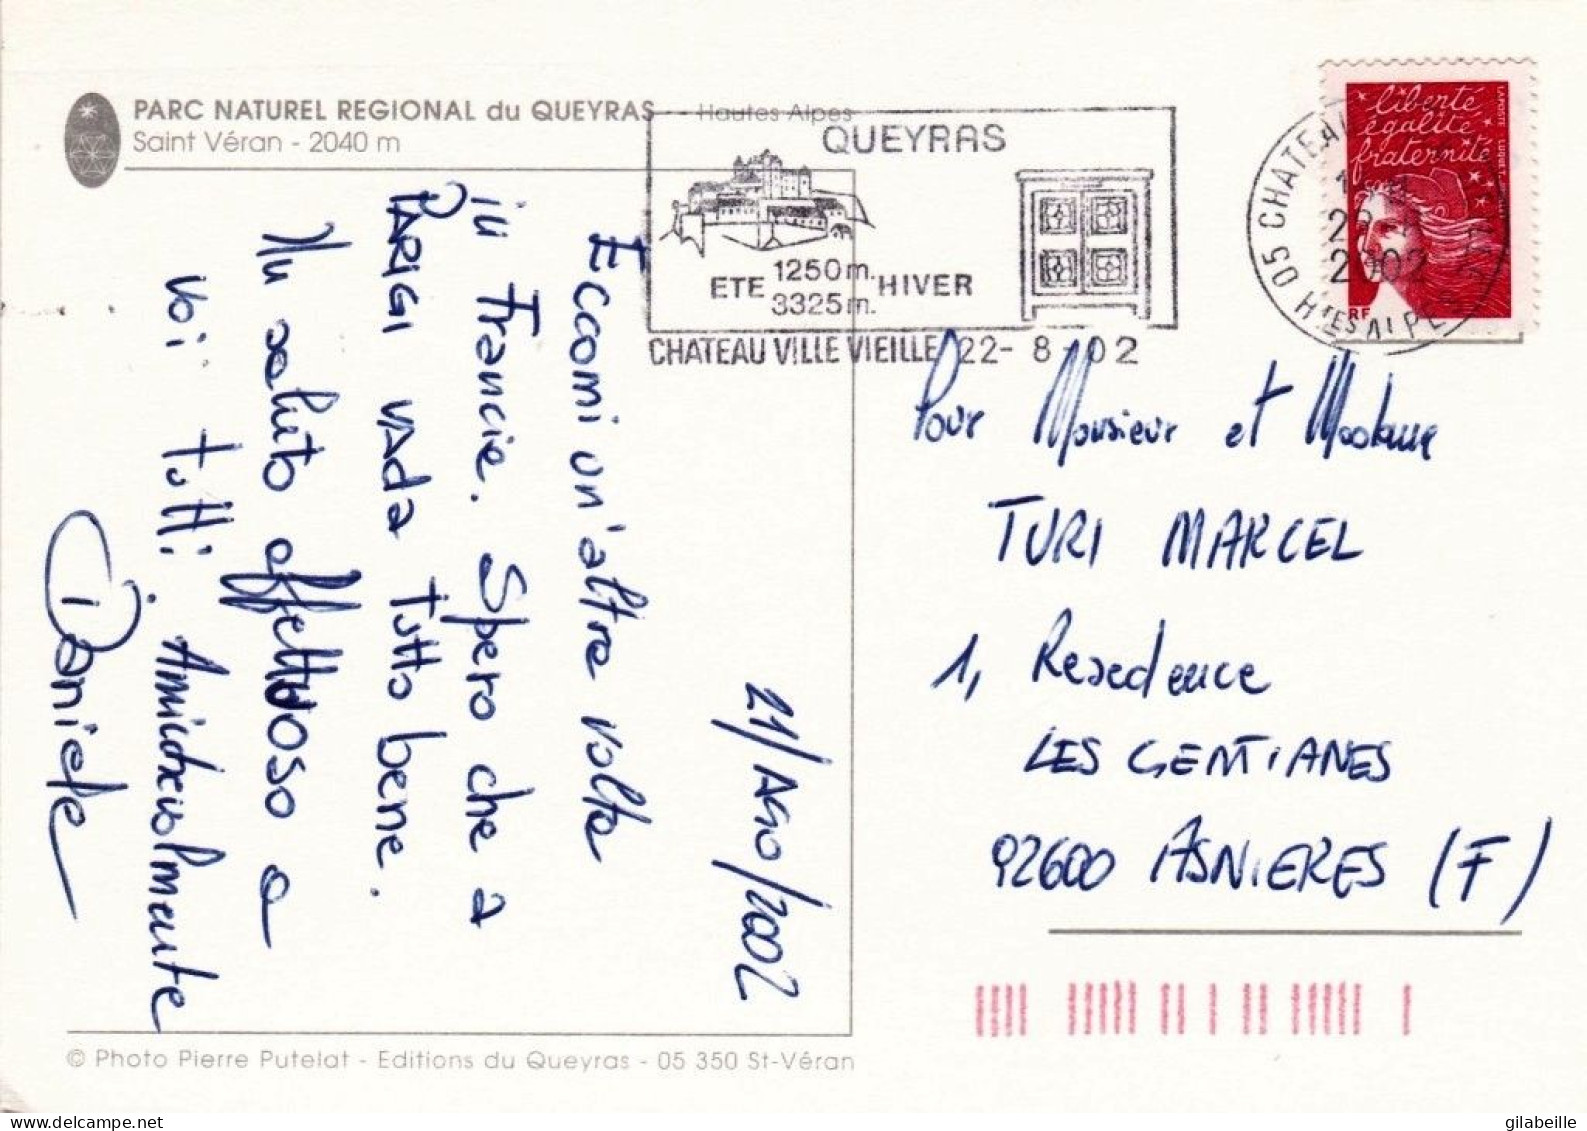 PARC NATUREL REGIONAL du QUEYRAS - Hautes Alpes
Saint Véran - 2040 m
QUEYRAS
ETE 1250m. HIVER
3325m.
CHATEAU VILLE VIEILLE 22-8 02
05 CHATEAU
22
2002
HTES ALPES
liberté
égalité
fraternité
LA POSTE
RF
21/AGO/2002
Eccomi un'altra volta
in Francia. Spero che a
PARIGI VADA TUTTO bene.
Un saluto affettuoso a
voi tutti. Amichevolmente
Daniele
Pour Monsieur et Madame
TURI MARCEL
1, Resedence
LES GENTIANES
92600 ASNIERES (F)
© Photo Pierre Putelat - Editions du Queyras - 05 350 St-Véran
gilabeille